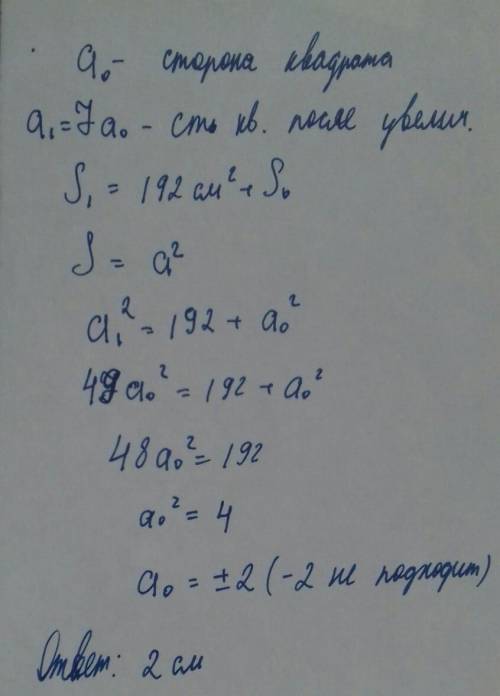 a₀ - сторона квадрата
a₁ = 7a₀ - сть кв. после увелич.
S₁ = 192 см² + S₀
S = a²
a₁² = 192 + a₀²
49a₀² = 192 + a₀²
48a₀² = 192
a₀² = 4
a₀ = ±2 (-2 не подходит)
Ответ: 2 см